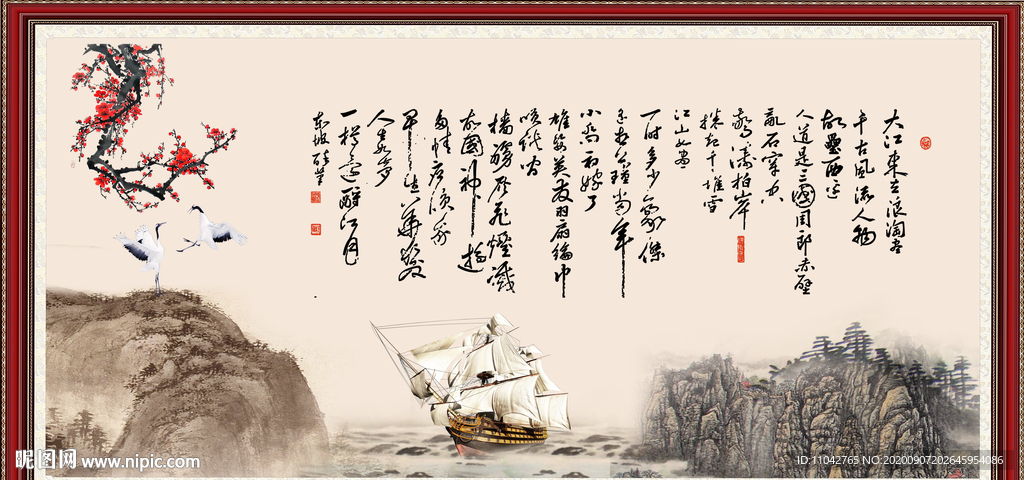 大江東去浪淘盡
千古風流人物
故壘西邊
人道是三國周郎赤壁
亂石穿空
驚濤拍岸
捲起千堆雪
江山如畫
一時多少豪傑
遙想公瑾當年
小喬初嫁了
雄姿英發羽扇綸巾
談笑間
檣艣灰飛煙滅
故國神遊
多情應笑我
早生華髮
人生如夢
一樽還酹江月
东坡醉筆
昵图网 www.nipic.com
ID:11042765 NO:20200907202645954086